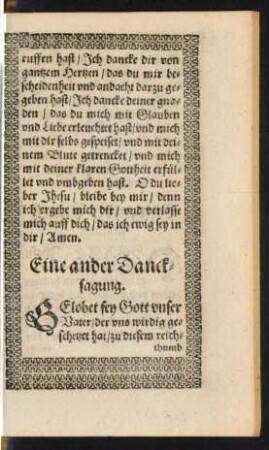 ruffen hast / Jch dancke dir von
gantzem Hertzen / das du mir be-
scheidenheit vnd andacht darzu ge-
geben hast / Jch dancke deiner gna-
den / das du mich mit Glauben
vnd Liebe erleuchtet hast / vnd mich
mit dir selbs gespeiset / vnd mit dei-
nem Blute getrencket / vnd mich
mit deiner klaren Gottheit erfül-
let vnd vmbgeben hast. O du lie-
ber Jhesu / bleibe bey mir / denn
ich ergebe mich dir / vnd verlasse
mich auff dich / das ich ewig sey in
dir / Amen.
Eine ander Danck-
sagung.
GElobet sey Gott vnser
Vater / der vns wirdig ge-
schetzet hat / zu diesem reich-
thumb